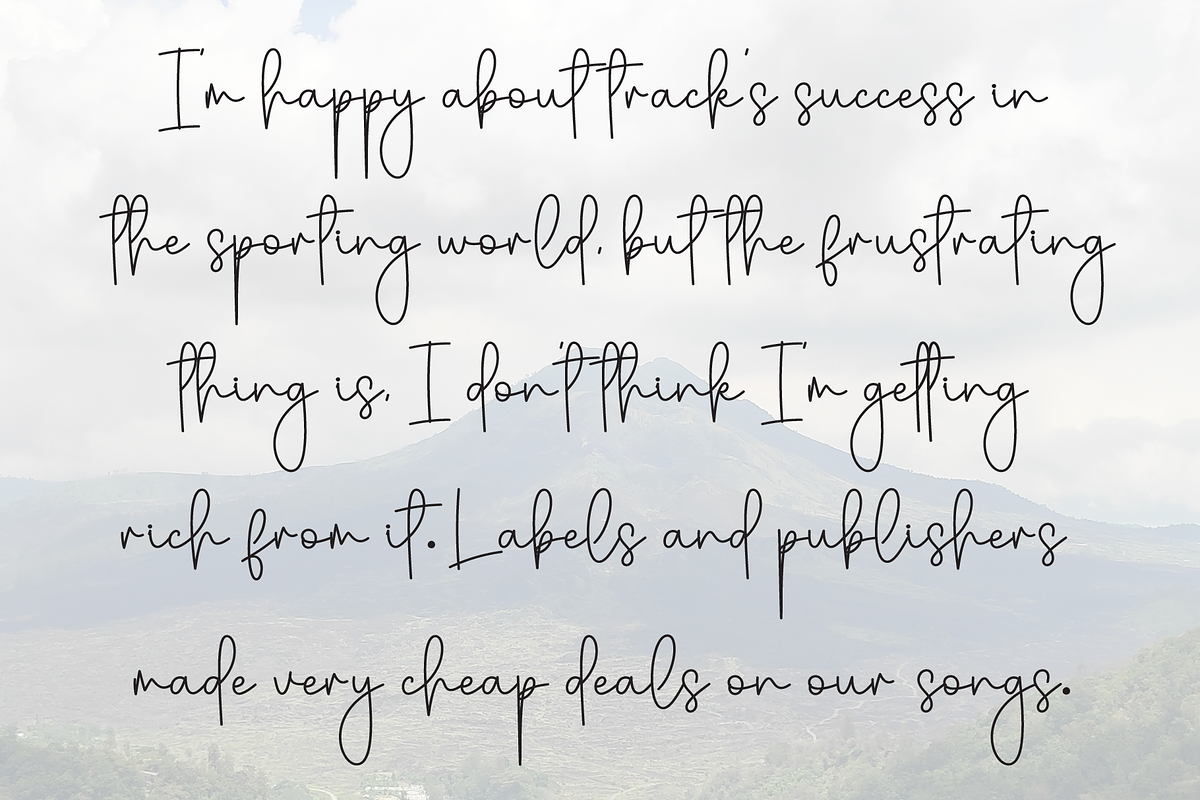 I'm happy about track's success in
the sporting world, but the frustrating
thing is, I don't think I'm getting
rich from it. Labels and publishers
made very cheap deals on our songs.